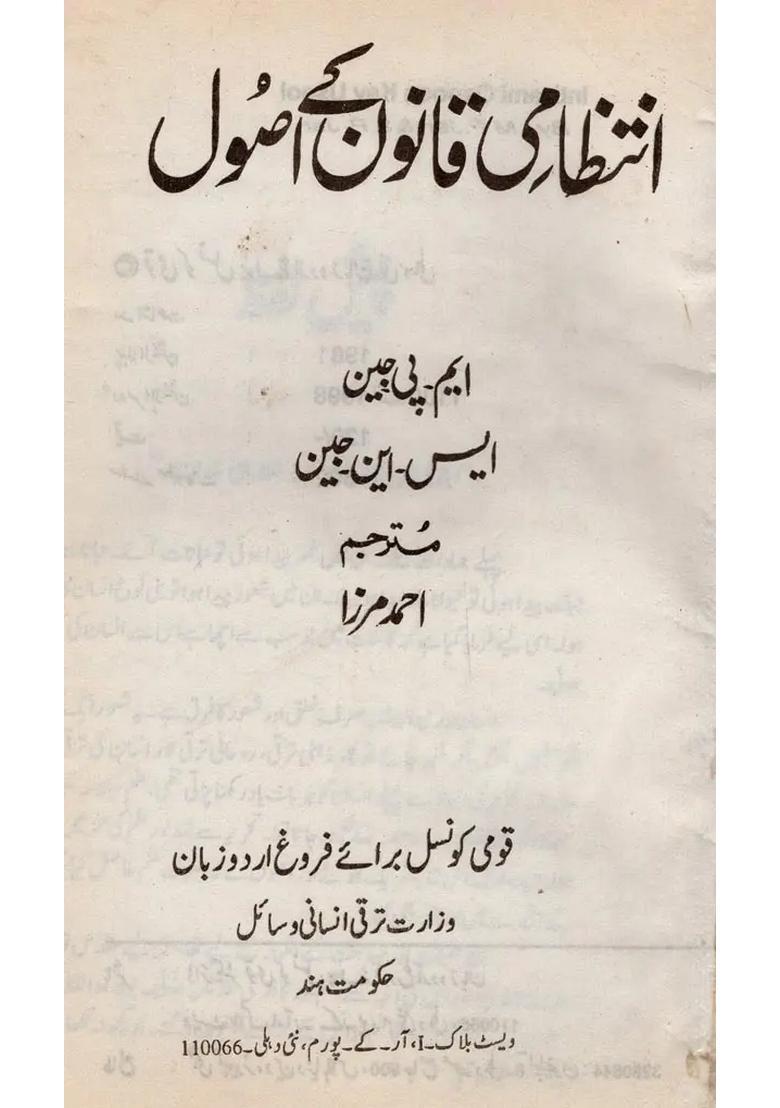 انتظامی قانون کے اصُول
ایم۔پی جین
ایس۔این۔جین
مُترجم
احمد مرزا
قومی کونسل برائے فروغ اردو زبان
وزارت ترقی انسانی وسائل
حکومت ہند
ویسٹ بلاک۔I، آر۔کے۔پورم، نئی دہلی۔110066